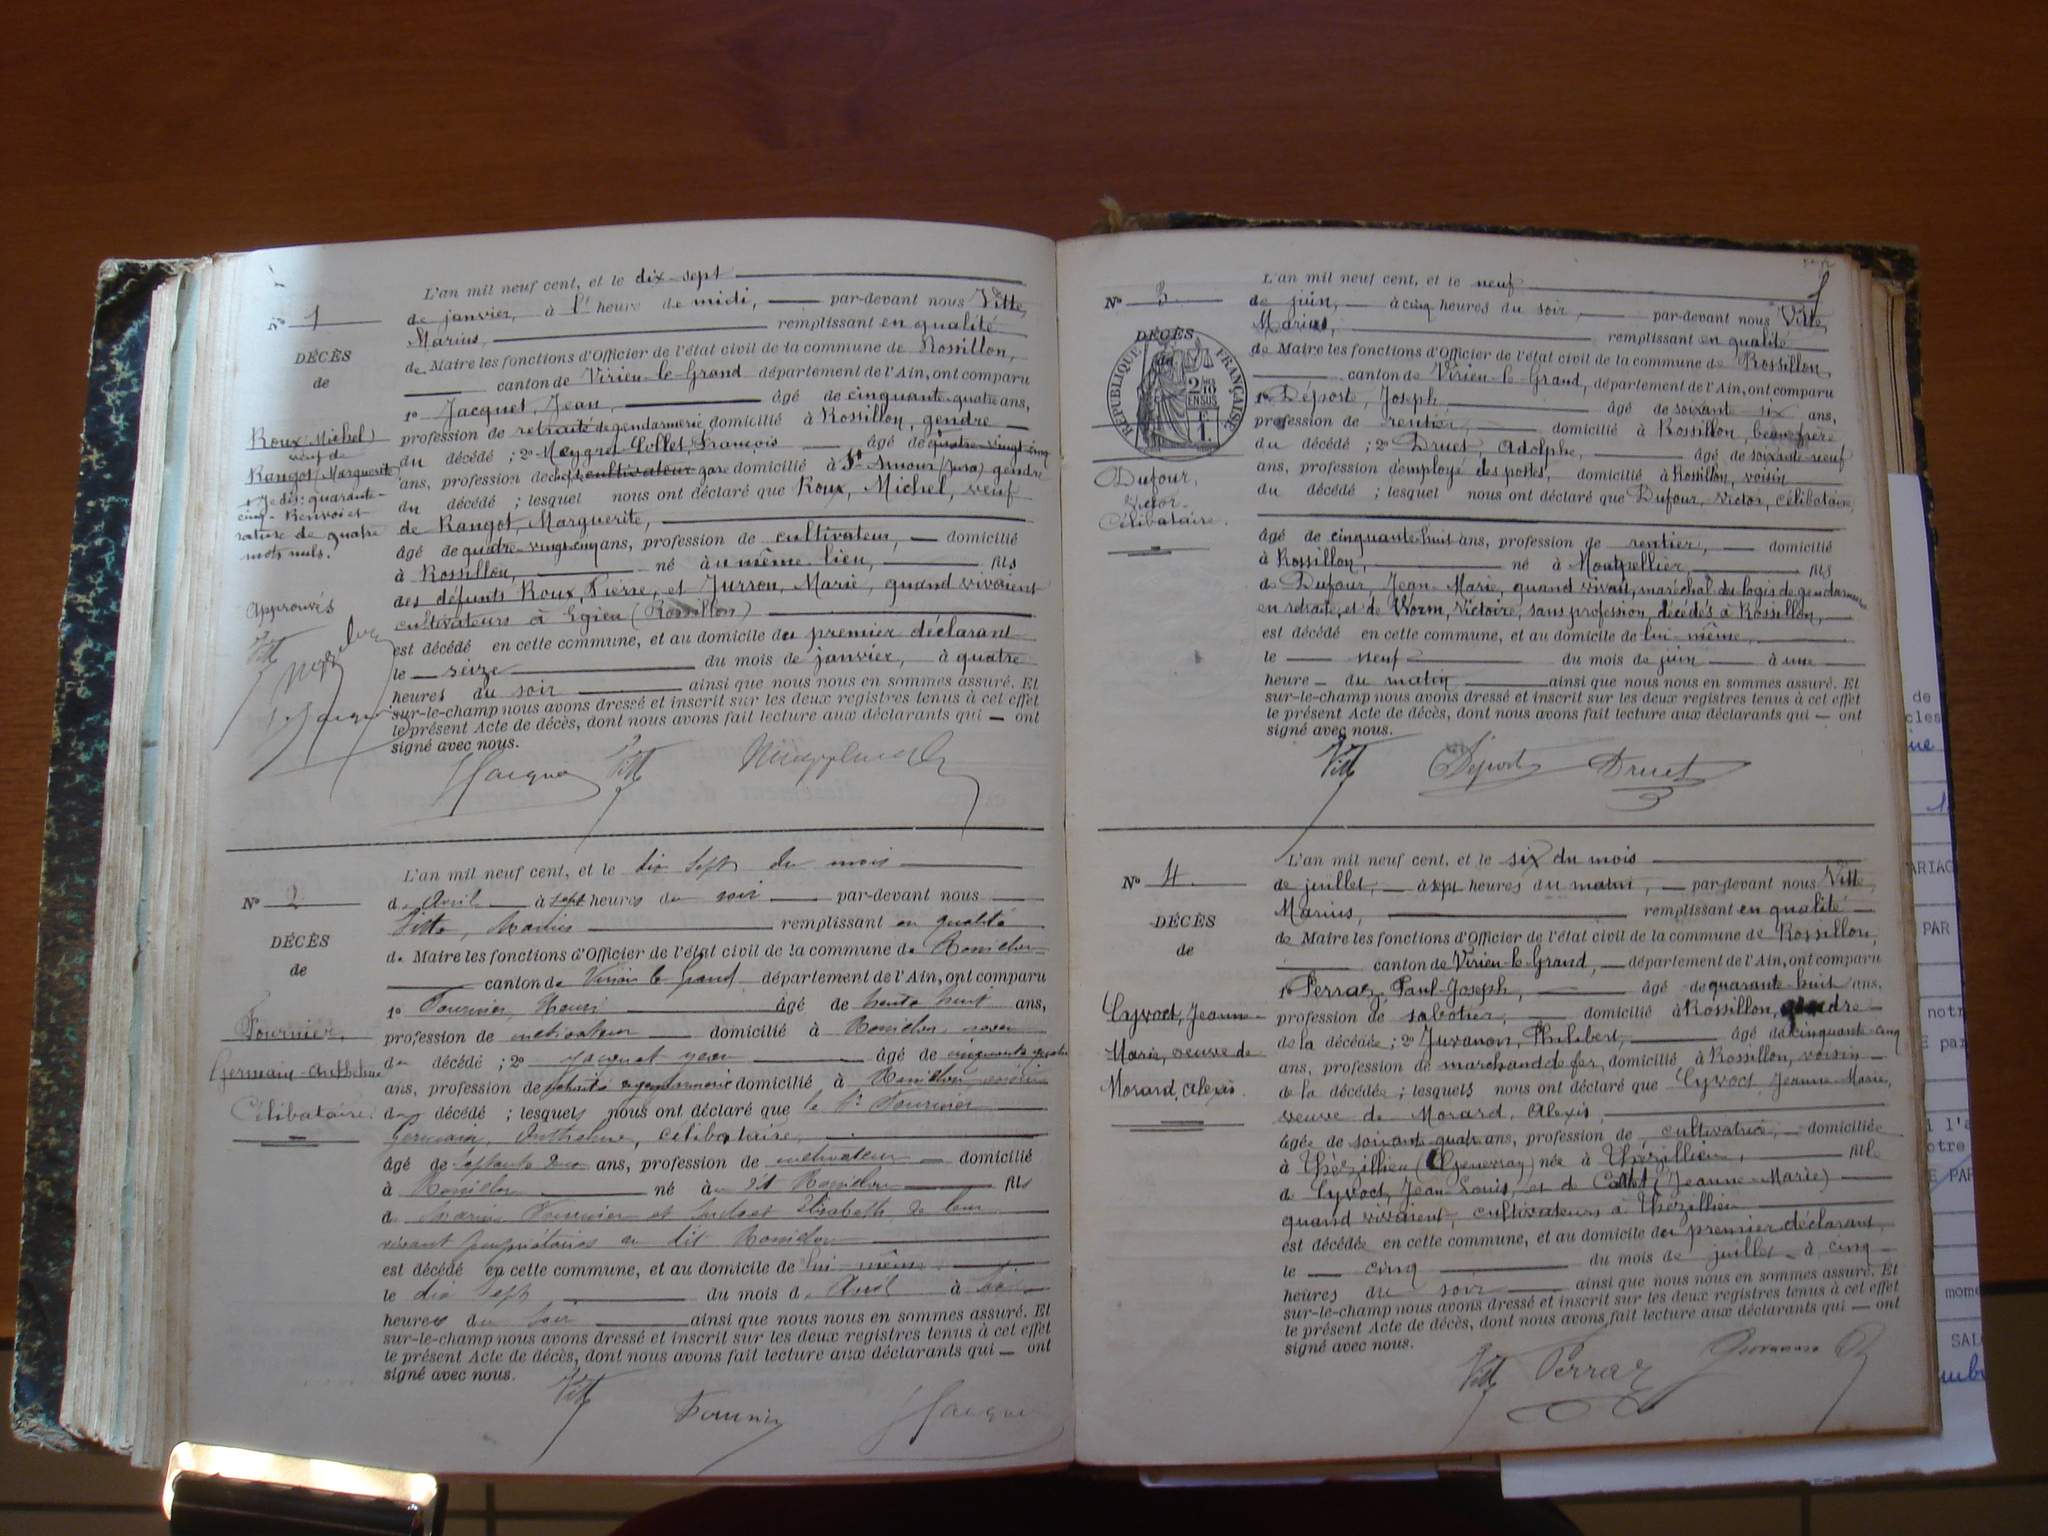 L'an mil neuf cent, et le dix-sept
N° 1
de janvier, à l' heure de midi, par-devant nous Vitte
Marius, remplissant en qualité
DÉCÈS
de
de Maire les fonctions d'Officier de l'état civil de la commune de Rossillon,
canton de Virieu-le-Grand département de l'Ain, ont comparu
1° Jacquet, Jean, âgé de cinquante-quatre ans,
profession de retraité de gendarmerie domicilié à Rossillon, gendre
Roux Michel
veuf de
Rangot, Marguerite
1 Je dis: quarante-
cinq - Renvoi et
rature de quatre
mots nuls.
Approuvés
Vitte
J. Jacquet
du décédé ; 2° Meygret-Collet, François âgé de quatre-vingt-cinq
ans, profession de chef cultivateur gare domicilié à St-Amour (Jura) gendre
du décédé ; lesquel nous ont déclaré que Roux, Michel, veuf
de Rangot, Marguerite,
âgé de quatre-vingt-cinq ans, profession de cultivateur, domicilié
à Rossillon, né au même lieu, fils
des défunts Roux, Pierre, et Jurron, Marie, quand vivaient
cultivateurs à Egieu (Rossillon)
est décédé en cette commune, et au domicile du premier déclarant
le seize du mois de janvier, à quatre
heures du soir ainsi que nous nous en sommes assuré. Et
sur-le-champ nous avons dressé et inscrit sur les deux registres tenus à cet effet
le présent Acte de décès, dont nous avons fait lecture aux déclarants qui — ont
signé avec nous.
J. Jacquet Vitte
L'an mil neuf cent, et le dix sept du mois
N° 2
d' Avril à sept heures du soir par-devant nous
Vitte, Marius remplissant en qualité
DÉCÈS
de
de Maire les fonctions d'Officier de l'état civil de la commune de Rossillon
canton de Virieu le Grand département de l'Ain, ont comparu
1° Fournier, âgé de trente huit ans,
Fournier,
Germain-Anthelme
Célibataire.
profession de cultivateur domicilié à Rossillon neveu
du décédé ; 2° Jacquet Jean âgé de cinquante quatre
ans, profession de retraité de gendarmerie domicilié à Rossillon, voisin
du décédé ; lesquels nous ont déclaré que le Sr Fournier
Germain, Anthelme, célibataire,
âgé de septante deux ans, profession de cultivateur domicilié
à Rossillon né à dit Rossillon fils
d Marin Fournier et Elisabeth de leur
vivant propriétaires au dit Rossillon
est décédé en cette commune, et au domicile de lui même
le dix sept du mois d' Avril à
heures du soir ainsi que nous nous en sommes assuré. Et
sur-le-champ nous avons dressé et inscrit sur les deux registres tenus à cet effet
le présent Acte de décès, dont nous avons fait lecture aux déclarants qui — ont
signé avec nous.
Vitte Fournier J. Jacquet
L'an mil neuf cent, et le neuf
1
N° 3
de juin, à cinq heures du soir, par-devant nous Vitte,
Marius, remplissant en qualité
DÉCÈS
de
RÉPUBLIQUE FRANÇAISE
2/10 EN SUS
de Maire les fonctions d'Officier de l'état civil de la commune de Rossillon,
canton de Virieu-le-Grand, département de l'Ain, ont comparu
1° Déposte, Joseph âgé de soixante-six ans,
profession de rentier, domicilié à Rossillon, beau-frère
du décédé ; 2° Druet, Adolphe, âgé de soixante-neuf
ans, profession d'employé des postes, domicilié à Rossillon, voisin
Dufour,
Victor
Célibataire.
du décédé ; lesquel nous ont déclaré que Dufour, Victor, célibataire,
âgé de cinquante-huit ans, profession de rentier, domicilié
à Rossillon, né à Montpellier, fils
de Dufour, Jean-Marie, quand vivait, maréchal des logis de gendarmerie
en retraite, et de Worm, Victoire, sans profession, décédés à Rossillon,
est décédé en cette commune, et au domicile de lui-même,
le neuf du mois de juin à une
heure du matin ainsi que nous nous en sommes assuré. Et
sur-le-champ nous avons dressé et inscrit sur les deux registres tenus à cet effet
le présent Acte de décès, dont nous avons fait lecture aux déclarants qui — ont
signé avec nous.
Vitte Déposte Druet
L'an mil neuf cent, et le six du mois
N° 4
de juillet, à sept heures du matin, par-devant nous Vitte
Marius, remplissant en qualité
DÉCÈS
de
de Maire les fonctions d'Officier de l'état civil de la commune de Rossillon,
canton de Virieu-le-Grand, département de l'Ain, ont comparu
1° Perraz, Paul-Joseph, âgé de quarante-huit ans,
Cyvoct, Jeanne-
Marie, veuve de
Morard, Alexis.
profession de sabotier, domicilié à Rossillon, gendre
de la décédée ; 2° Juvanon, Philibert, âgé de cinquante-cinq
ans, profession de marchand de fer, domicilié à Rossillon, voisin
de la décédée ; lesquels nous ont déclaré que Cyvoct, Jeanne-Marie,
veuve de Morard, Alexis,
âgée de soixante-quatre ans, profession de cultivatrice, domiciliée
à Thézillieu (Genevray) née à Thézillieu, fille
de Cyvoct, Jean-Louis, et de Collet (Jeanne-Marie)
quand vivaient, cultivateurs à Thézillieu
est décédée en cette commune, et au domicile du premier déclarant,
le cinq du mois de juillet à cinq
heures du soir ainsi que nous nous en sommes assuré. Et
sur-le-champ nous avons dressé et inscrit sur les deux registres tenus à cet effet
le présent Acte de décès, dont nous avons fait lecture aux déclarants qui — ont
signé avec nous.
Vitte Perraz Juvanon